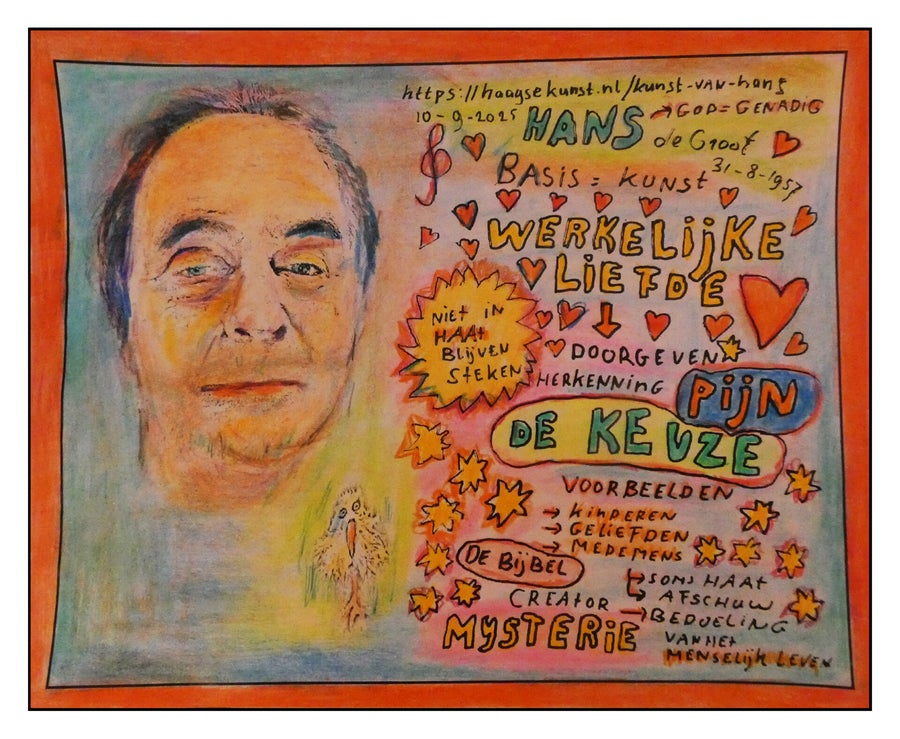 https://haagsekunst.nl/kunst-van-hans
10-9-2025 HANS → GOD = GENADIG
de Groot
31-8-1957
BASIS = KUNST
WERKELIJKE
LIEFDE
NIET IN
HAAT
BLIJVEN
STEKEN
DOORGEVEN
HERKENNING PIJN
DE KEUZE
VOORBEELDEN
→ KINDEREN
→ GELIEFDEN
→ MEDEMENS
DE BIJBEL
→ SOMS HAAT
→ AFSCHUW
CREATOR
→ BEDOELING
VAN HET
MENSELIJK LEVEN
MYSTERIE